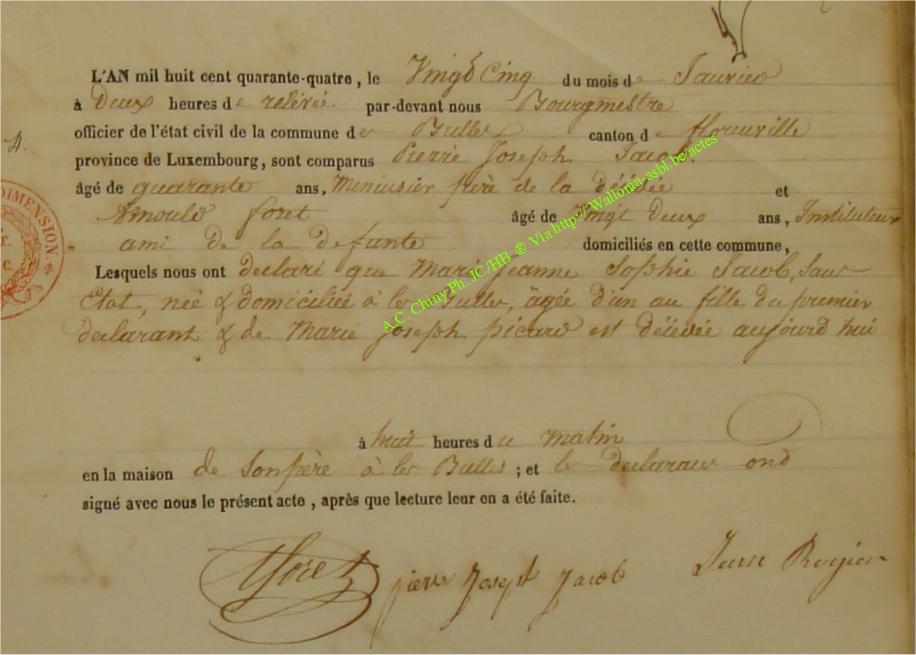 L'AN mil huit cent quarante-quatre, le Vingt Cinq du mois de Janvier
à Deux heures de relévée par-devant nous Bourgmestre
4.
officier de l'état civil de la commune des Bulles canton de florenville
province de Luxembourg, sont comparus Pierre Joseph Jacob
âgé de quarante ans, Menuisier père de la décédée et
Arnould foret âgé de Vingt deux ans, Instituteur
ami de la defunte domiciliés en cette commune,
Lesquels nous ont declaré que Marie Jeanne Sophie Jacob, Sans
Etat, née & domiciliée à les Bulles, âgée d'un an fille du premier
declarant & de Marie Joseph picard est décédée aujourd'hui
à huit heures du matin
en la maison de Son père à les Bulles ; et les declarans ond
signé avec nous le présent acte, après que lecture leur en a été faite.
foret pierre Joseph Jacob
DIMENSION
A.C. Chiny Ph. JC/HB ® Via http://Wallonia-asbl.be/actes